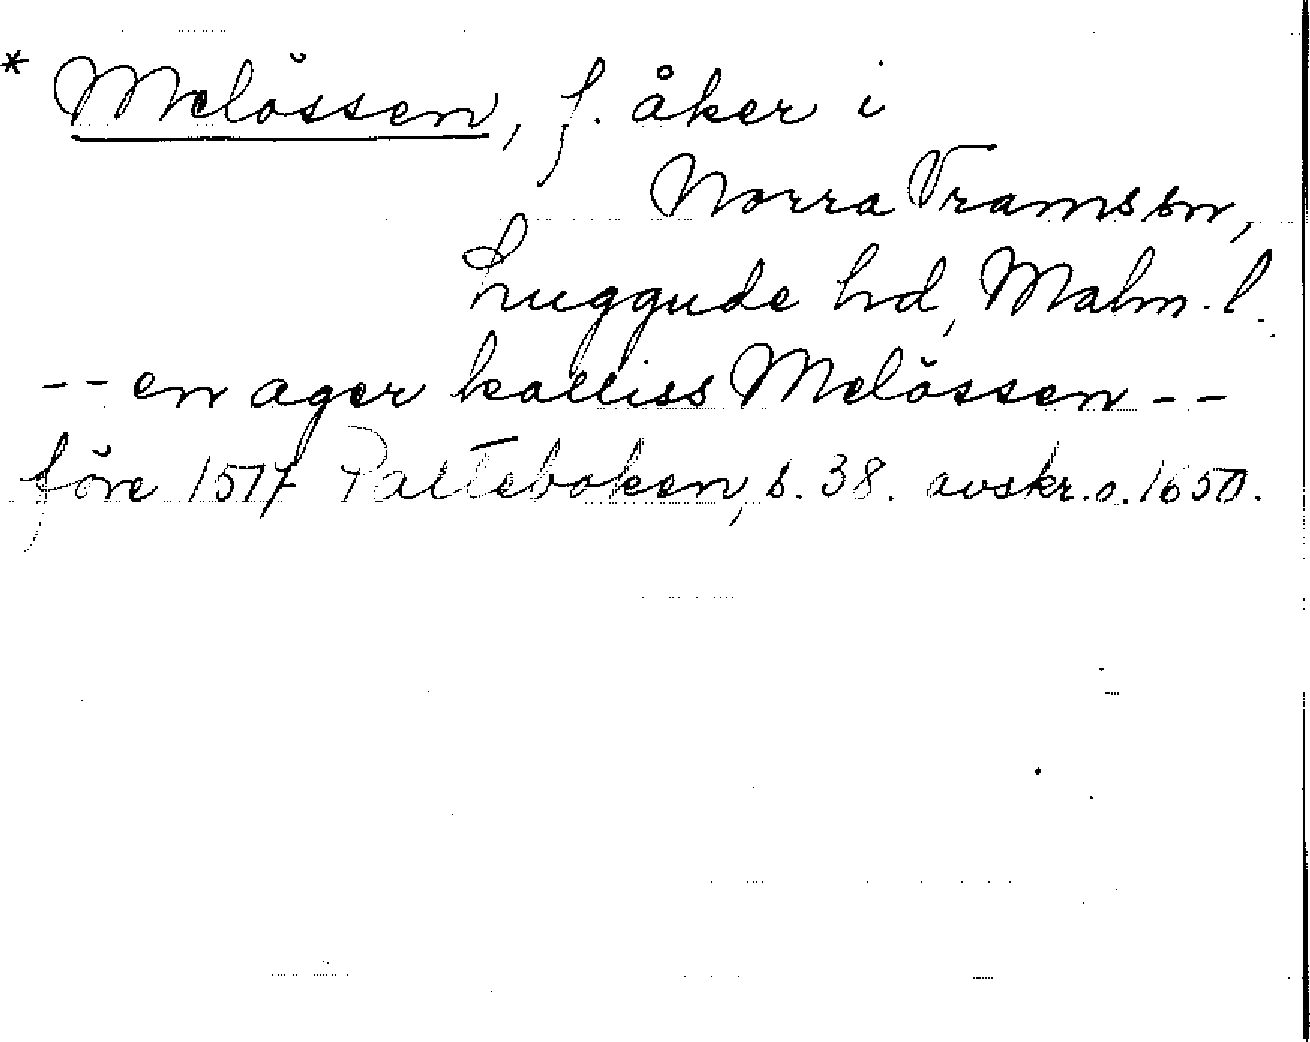 * Melössen, f. åker i
Norra Vrams sn,
Luggude hd, Malm. l.
-- en ager kalliss Melössen --
före 1577 Palteboken, s. 38. avskr. o. 1650.